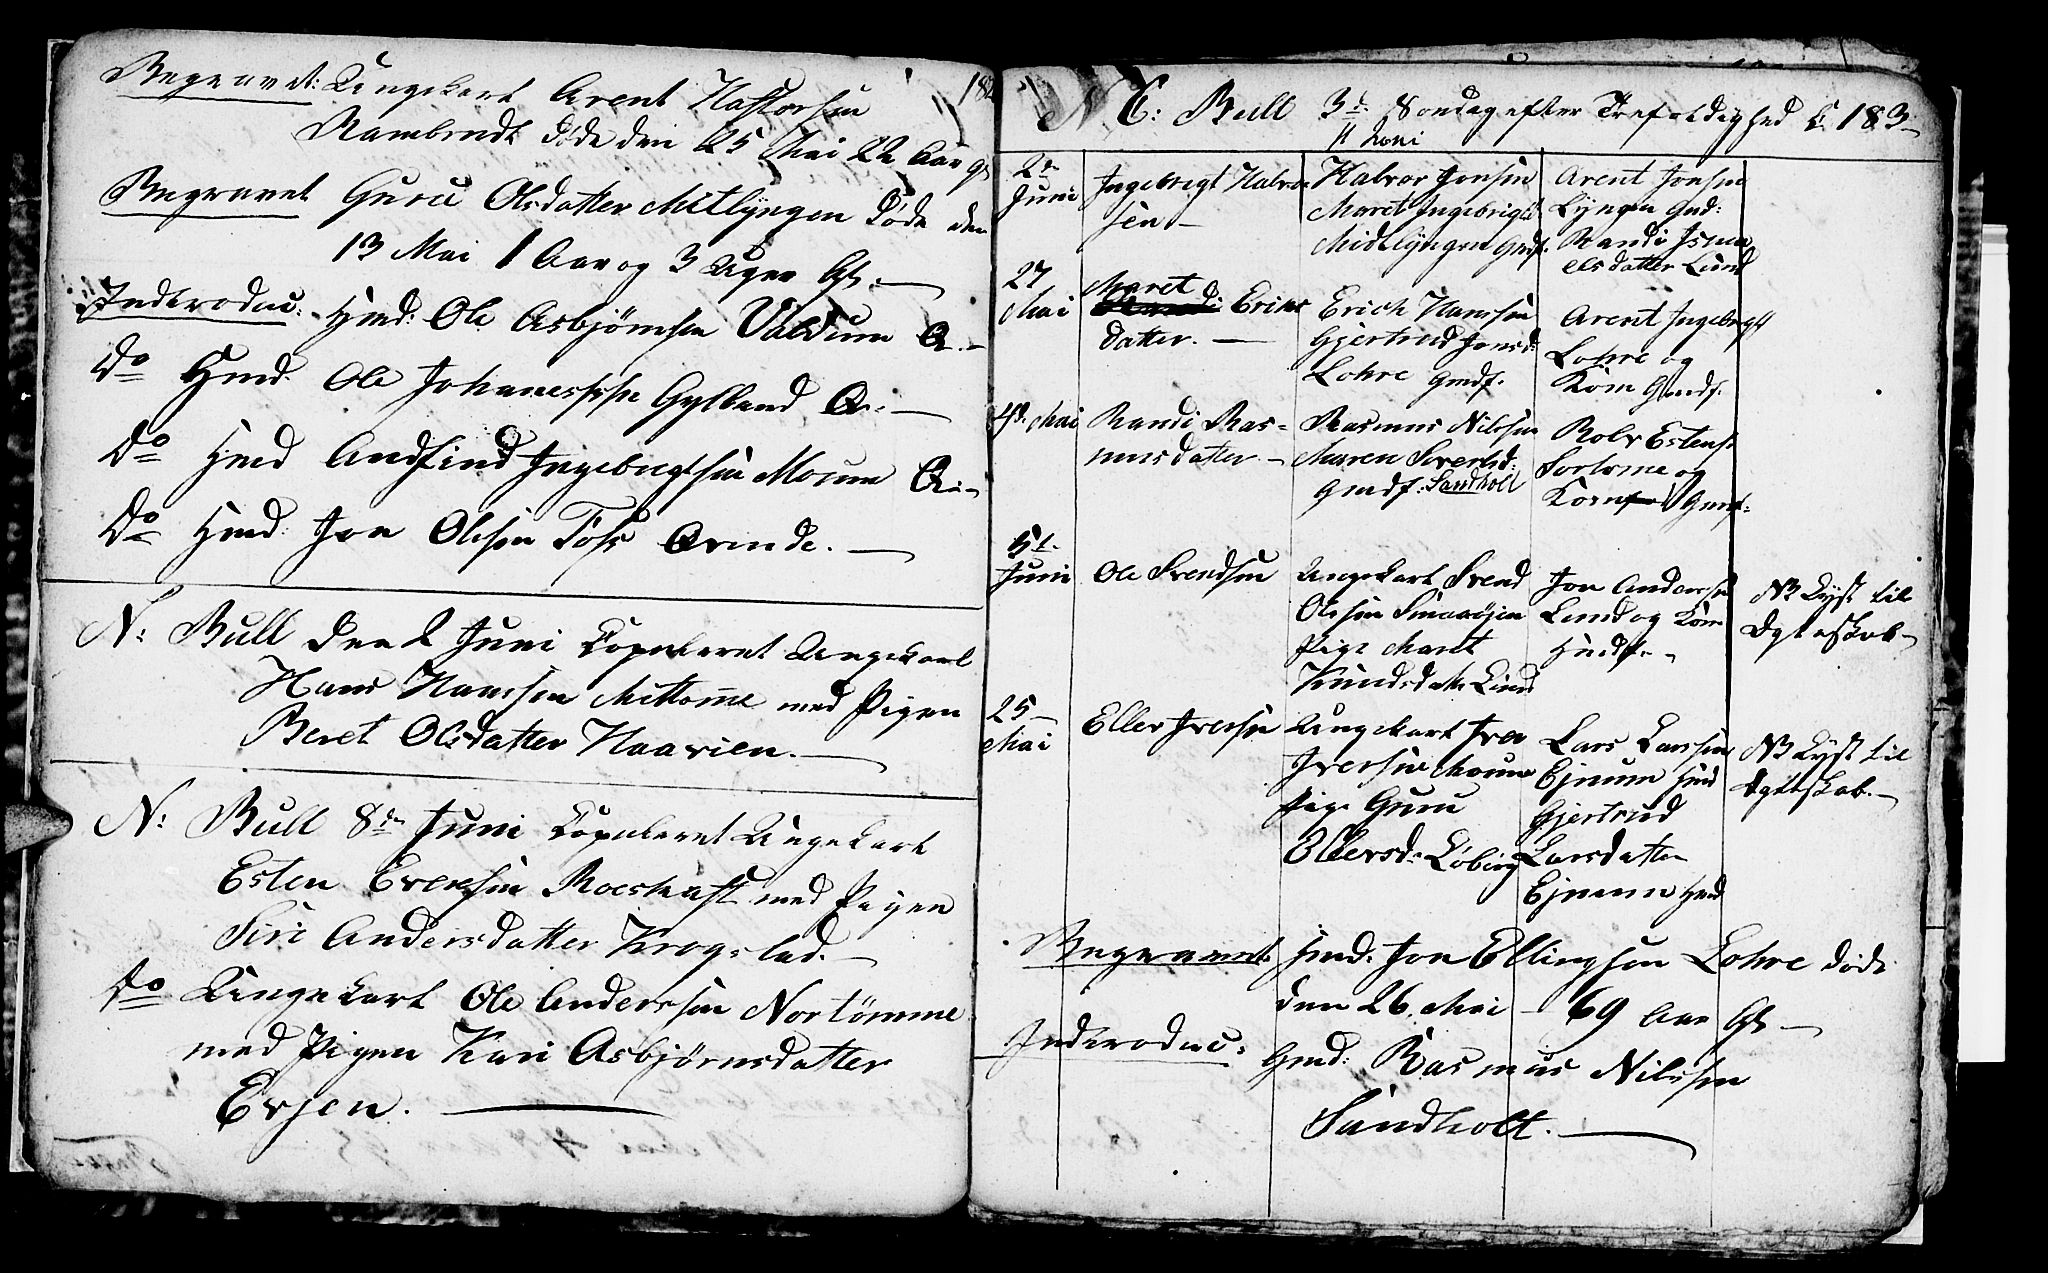 Begravet: Ungekarl Arent Hafforsen
Rambredt døde den 25 Mai 22 Aar gl
Begravet Guru Olsdatter Mitlyngen døde den
13 Mai 1 Aar og 3 Uger Gl.
Inderoduc: Hmd: Ole Asbjørnsen Valdum Q.
Do Hmd. Ole Johannessen Gylland Q.
Do Hmd Andfind Ingebrigtsen Moum Q.
Do Hmd: Jon Olsen Tofs Qvinde.
N: Bull den 2 Juni Copuleret Ungekarl
Hans Hanssen Mittomme med Pigen
Beret Olsdatter Haavien.
N: Bull 8de Juni Copuleret Ungekarl
Esten Evensen med Pigen
Siri Andersdatter Krogstad.
Do Ungekarl Ole Anderssen Nortømme
med Pigen Kari Asbjørnsdatter
Evjen.
182
N E: Bull 3d Søndag efter Trefoldighed C. 183
11 Juni
2den Juni Ingebrigt Halvorsen Halvor Jonsen Maret Ingebrigtd Midtlyngen Gmdf. Arent Jonsen Lyngen Gmd: Randi Ismaelsdatter Lund
27 Mai Maret Ericsdatter. Erich Hanssen Gjertrud Jonsd: Lohre Gmdf. Arent Ingebrigts Lohre og Kone Gmdf.
Mai Randi Rasmusdatter Rasmus Nilssen Maren Sivertsd: Gmdf: Sandholt Rolv Estens Sortome og Kone Gmf:
5t Juni Ole Svendsen Ungekarl Svend Olsen Pige Marit Knudsdatter Lund Jon Anderssen Lund og Kone Hmdf. NB Lyst til Egteskab
25 Mai Eller Iversen Ungekarl Iver Iversen Moum Pige Guru Ellersd: Løberg Lars Larssen Ejnum Hmd Gjertrud Larsdatter Ejnum Hmd NB Lyst til Egteskab.
Begravet: Hmd. Jon Ellingsen Lohre døde
den 26. Mai 69 Aar Gl
Inderoduc: Gmd: Rasmus Nilssen
Sandholt.